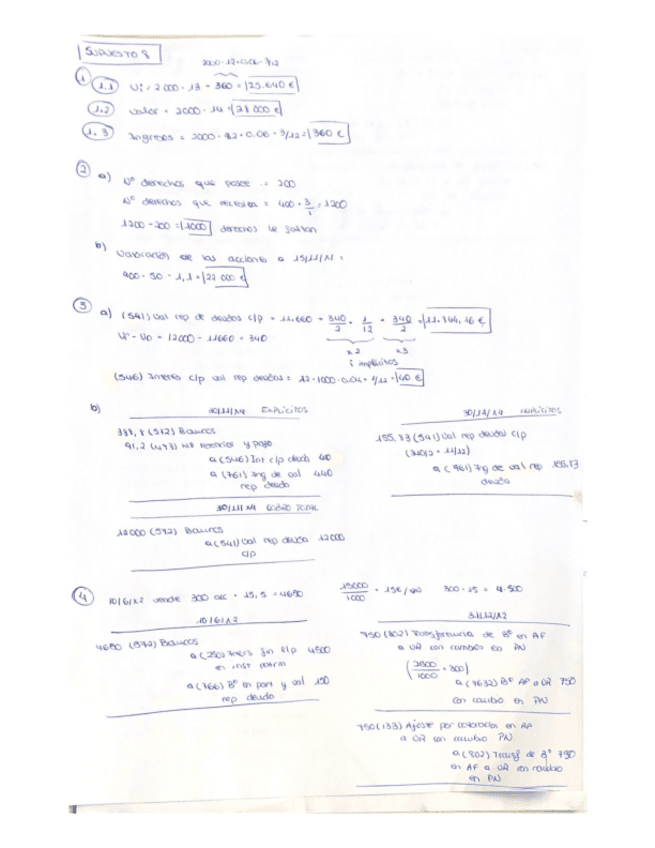 SUPUESTO 8
2000 · 12 · 0.06 · 3/12
① 1.1 Vi = 2000 · 13 - 360 = 25.640 €
1.2 Valor = 2000 · 14 = 28 000 €
1.3 Ingresos = 2000 · 12 · 0.06 · 3/12 = 360 €
② a) Nº derechos que posee = 200
Nº derechos que necesita = 400 · 3/1 = 1200
1200 - 200 = 1000 derechos le faltan
b) Valoración de las acciones a 15/11/X1:
400 · 50 · 1,1 = 22 000 €
③ a) (541) Val rep de deudas c/p = 11.660 + 340/2 · 1/12 + 340/2 = 11.844,16 €
Vr - Vo = 12000 - 11660 = 340
x2 x3
i implícitos
(546) Interés c/p val rep deudas = 12 · 1000 · 0.04 · 1/12 = 40 €
b) 30/11/X4 EXPLÍCITOS
388,8 (572) Bancos
91,2 (473) HP retencios y pago
a (546) Int c/p deud 40
a (761) Ing de val 440
rep deuda
30/11/X4 IMPLÍCITOS
155,83 (541) Val rep deudas c/p
(340/2 · 11/12)
a (761) Ig de val rep 155.83
deuda
30/11/X4 COBRO TOTAL
12000 (572) Bancos
a (541) Val rep deuda 12000
c/p
④ 10/6/X2 vende 300 acc · 15,5 = 4650
15000/1000 = 15€/acc 300 · 15 = 4.500
10/6/X2
4650 (572) Bancos
a (250) Invers fin l/p 4500
en inst patrim
a (766) Bº en part y val 150
rep deuda
31/12/X2
750 (802) Transferencia de Bº en AF
a VR con cambio en PN
(2500/1000 · 300)
a (7632) Bº AF a VR 750
con cambio en PN
750 (133) Ajuste por valoración en AF
a VR con cambio PN
a (802) Transf de Bº 750
en AF a VR con cambio
en PN